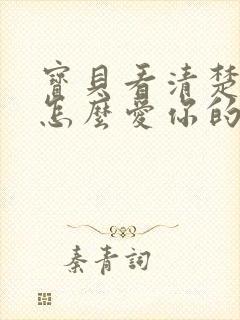 寶貝看清楚
怎麼愛你的
秦青詞